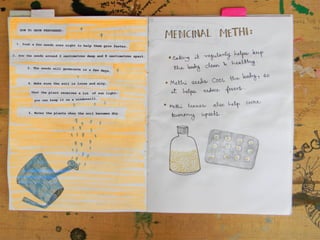 HOW TO GROW FENUGREEK:
1. Soak a few seeds over night to help them grow faster.
2. Sow the seeds around 2 centimetres deep and 5 centimetres apart
3. The seeds will germinate in a few days.
4. Make sure the soil is loose and airy.
that the plant receives a lot of sun light-
you can keep it on a windowsill.
5. Water the plants when the soil becomes dry
MEDICINAL METHI:
• Eating it regularly helps keep
the body clean & healthy
• Methi seeds COOL the body, so
it helps reduce fevers
• Methi leaves also help cure
tummy upsets